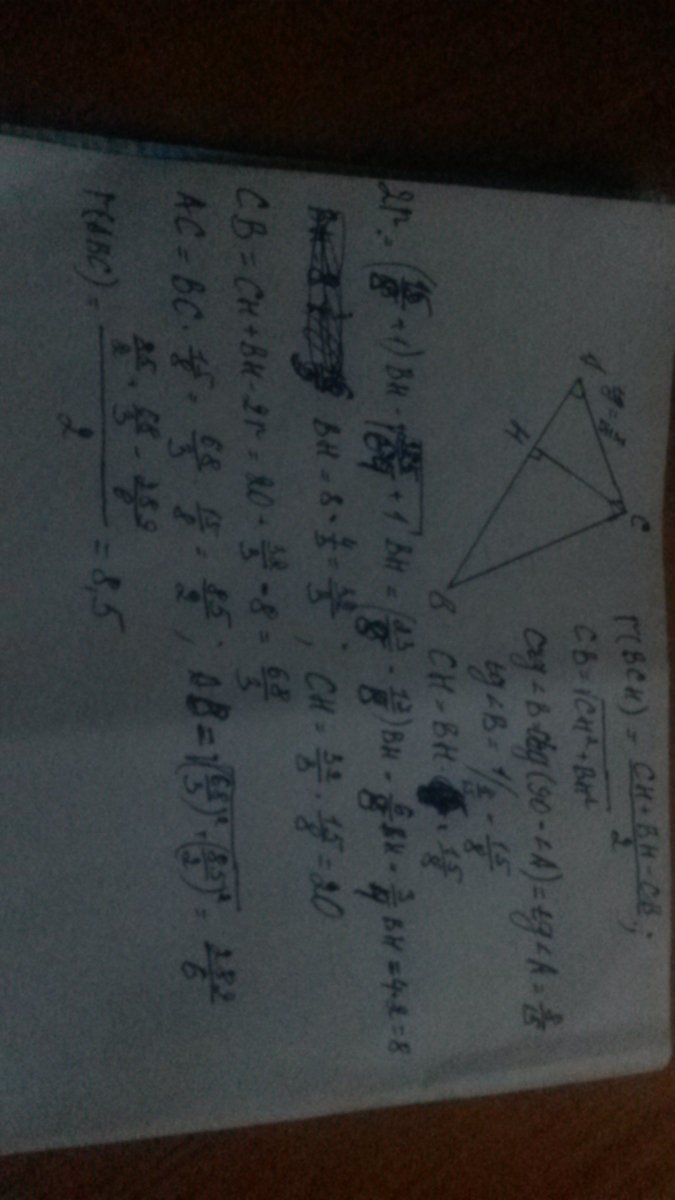 r(BCH) = (CH + BH - CB)/2 ;
CB = √(CH² + BH²)
ctg∠B = (90 - ∠A) = tg∠A = 8/15
tg∠B = 1/(8/15) = 15/8
CH = BH · 15/8
A
tg = 8/15
C
H
B
2r = (15/8 + 1) BH - √(225/64 + 1) BH = (23/8 - 17/8) BH = 6/8 BH = 3/4 BH = 4·2 = 8
BH = 8 · 4/3 = 32/3 ; CH = 32/3 · 15/8 = 20
CB = CH + BH - 2r = 20 + 32/3 - 8 = 68/3
AC = BC · 15/8 = 68/3 · 15/8 = 85/2 ; AB = √((68/3)² + (85/2)²) = 289/6
r(ABC) = (85/2 + 68/3 - 289/6)/2 = 8,5